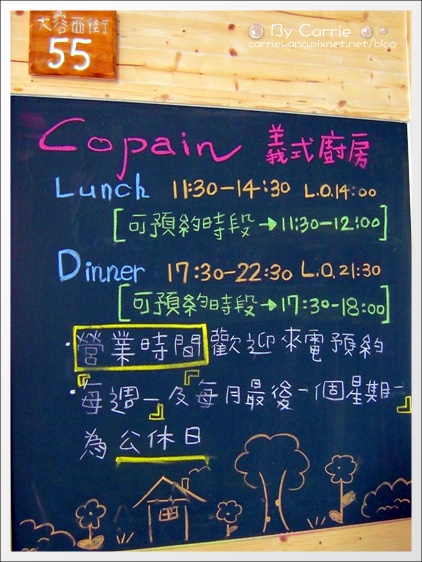 By Carrie
carriewang.pixnet.net/blog
大容西街
55
Copain 義式廚房
Lunch 11:30-14:30 L.O.14:00
[可預約時段→11:30-12:00]
Dinner 17:30-22:30 L.O.21:30
[可預約時段→17:30-18:00]
·營業時間歡迎來電預約
·『每週一』及『每月最後一個星期』
為公休日